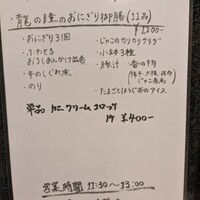 龍の瞳のおにぎり御膳(11品)
¥1200-
・おにぎり3個
・ふわとろ
おろしあんかけ出巻
・牛のしぐれ煮
・のり
・じゃこのカリカリサラダ
・小鉢3種
・豚汁
・香の物
・たまごとほうじ茶のアイス
単品 カニクリームコロッケ
1ケ ¥400-
営業時間 11:30~15:00